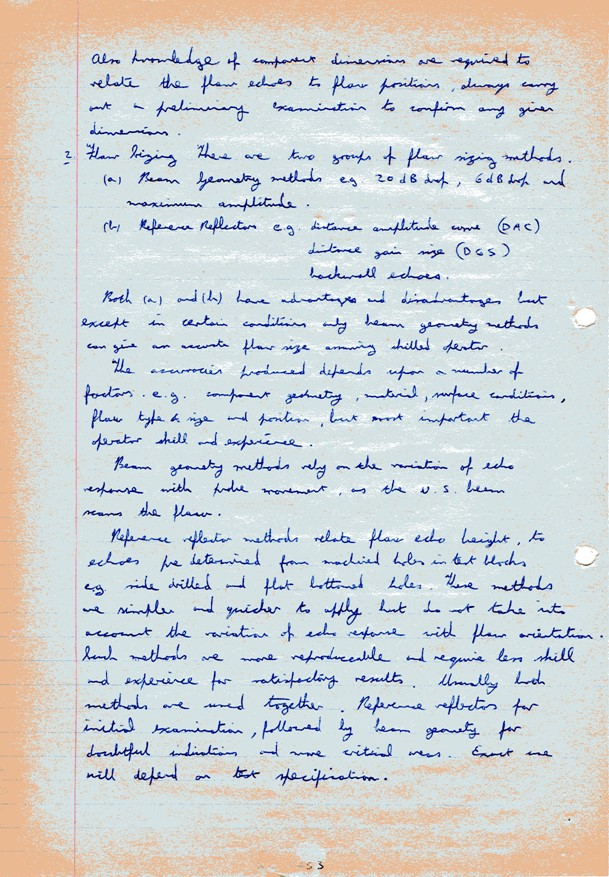 Also knowledge of component dimensions are required to
relate the flaw echoes to flaw positions, always carry
out a preliminary examination to confirm any given
dimensions.
2 Flaw Sizing There are two groups of flaw sizing methods.
(a) Beam Geometry methods eg 20 dB drop, 6 dB drop and
maximum amplitude.
(b) Reference Reflectors e.g. distance amplitude curve (DAC)
distance gain size (DGS)
backwall echoes.
Both (a) and (b) have advantages and disadvantages but
except in certain conditions only beam geometry methods
can give an accurate flaw size assuming skilled operator.
The accuracies produced depends upon a number of
factors. e.g. component geometry, material, surface conditions,
flaw type & size and position, but most important the
operator skill and experience.
Beam geometry methods rely on the variation of echo
response with probe movement, as the U.S. beam
scans the flaw.
Reference reflector methods relate flaw echo height, to
echoes pre determined from machined holes in test blocks
e.g. side drilled and flat bottomed holes. These methods
are simpler and quicker to apply but do not take into
account the variation of echo response with flaw orientation.
Such methods are more reproduceable and require less skill
and experience for satisfactory results. Usually both
methods are used together. Reference reflectors for
initial examination, followed by beam geometry for
doubtful indications and more critical areas. Exact use
will depend on test specification.
53